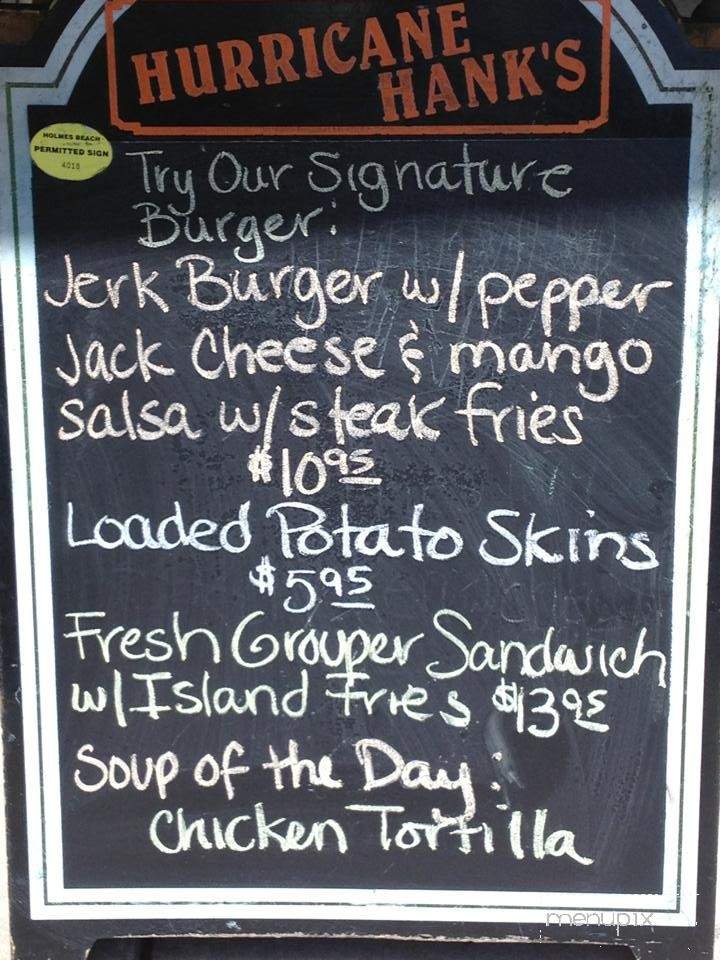 HURRICANE
HANK'S
HOLMES BEACH
PERMITTED SIGN
4018
Try Our Signature
Burger:
Jerk Burger w/ pepper
Jack Cheese & mango
salsa w/ steak fries
$10.95
Loaded Potato Skins
$5.95
Fresh Grouper Sandwich
w/ Island Fries $13.95
Soup of the Day:
Chicken Tortilla
menupix